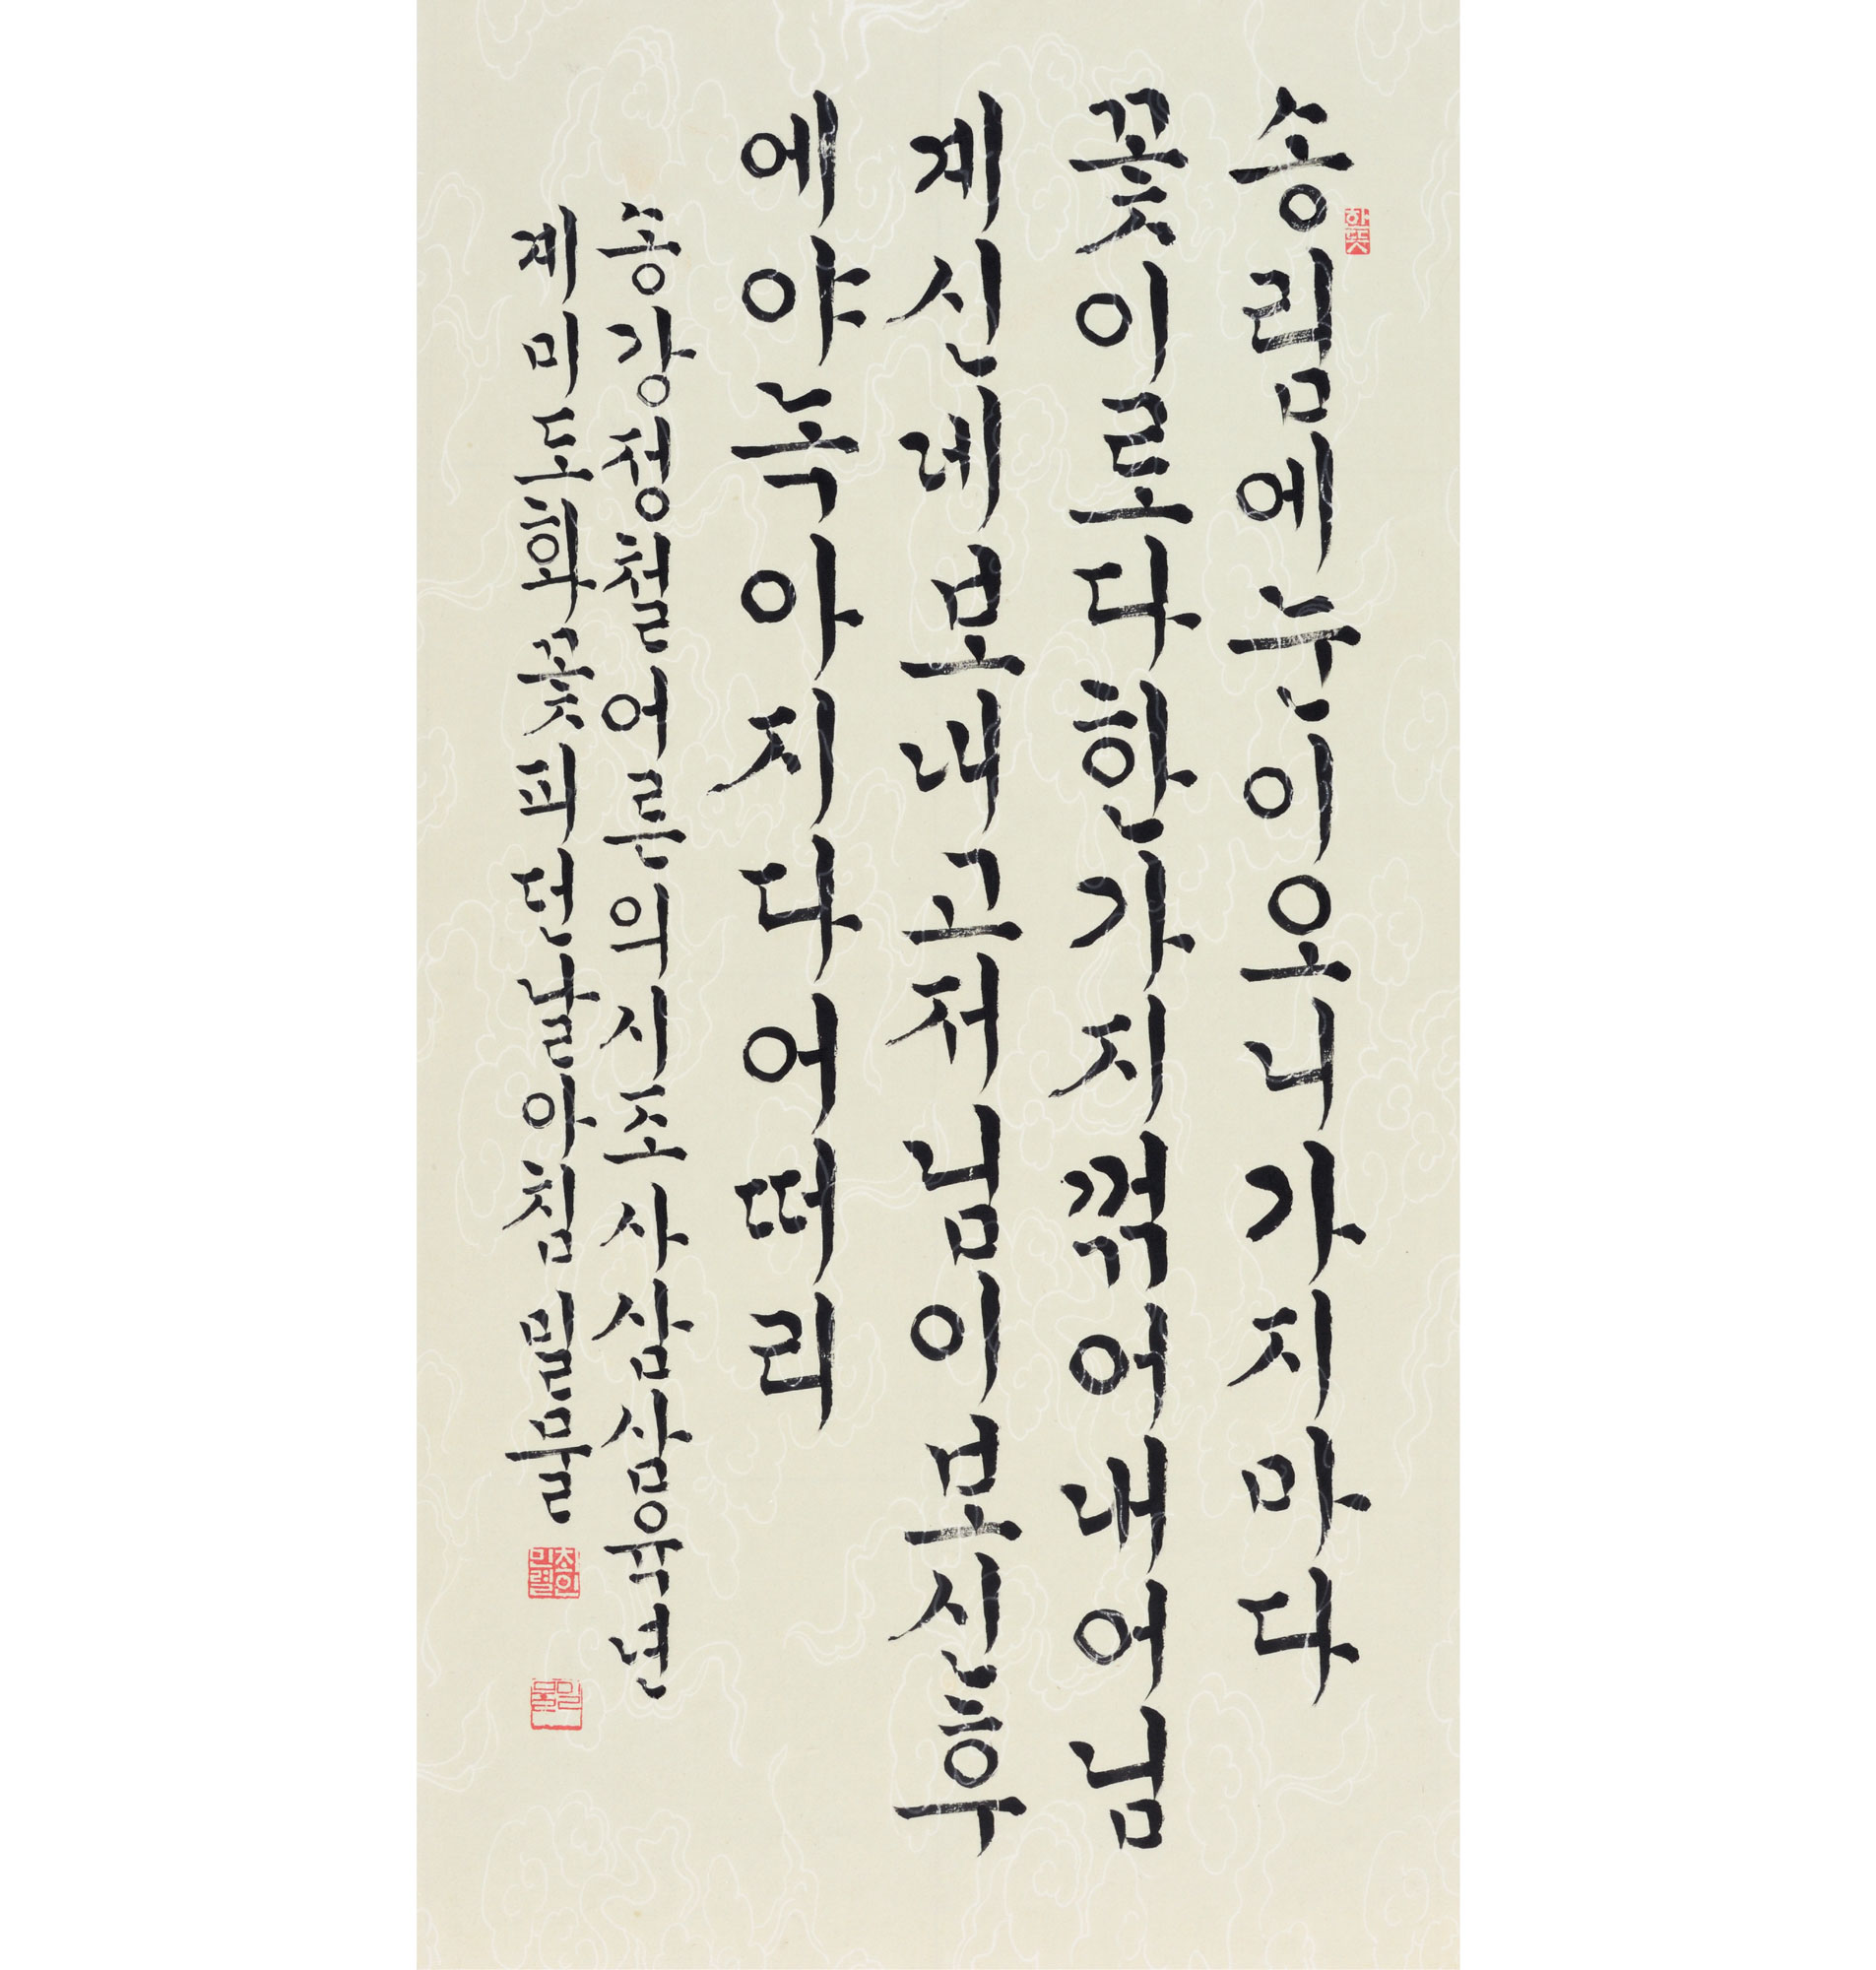 송림에눈이오니가지마다
꽃이로다한가지꺾어내어님
계신데보내고저님이보신후
에야녹아지다어떠리
송강정철어른의시조사삼삼육년
계미도화꽃피던날아침 밀물
한뜻
밀물